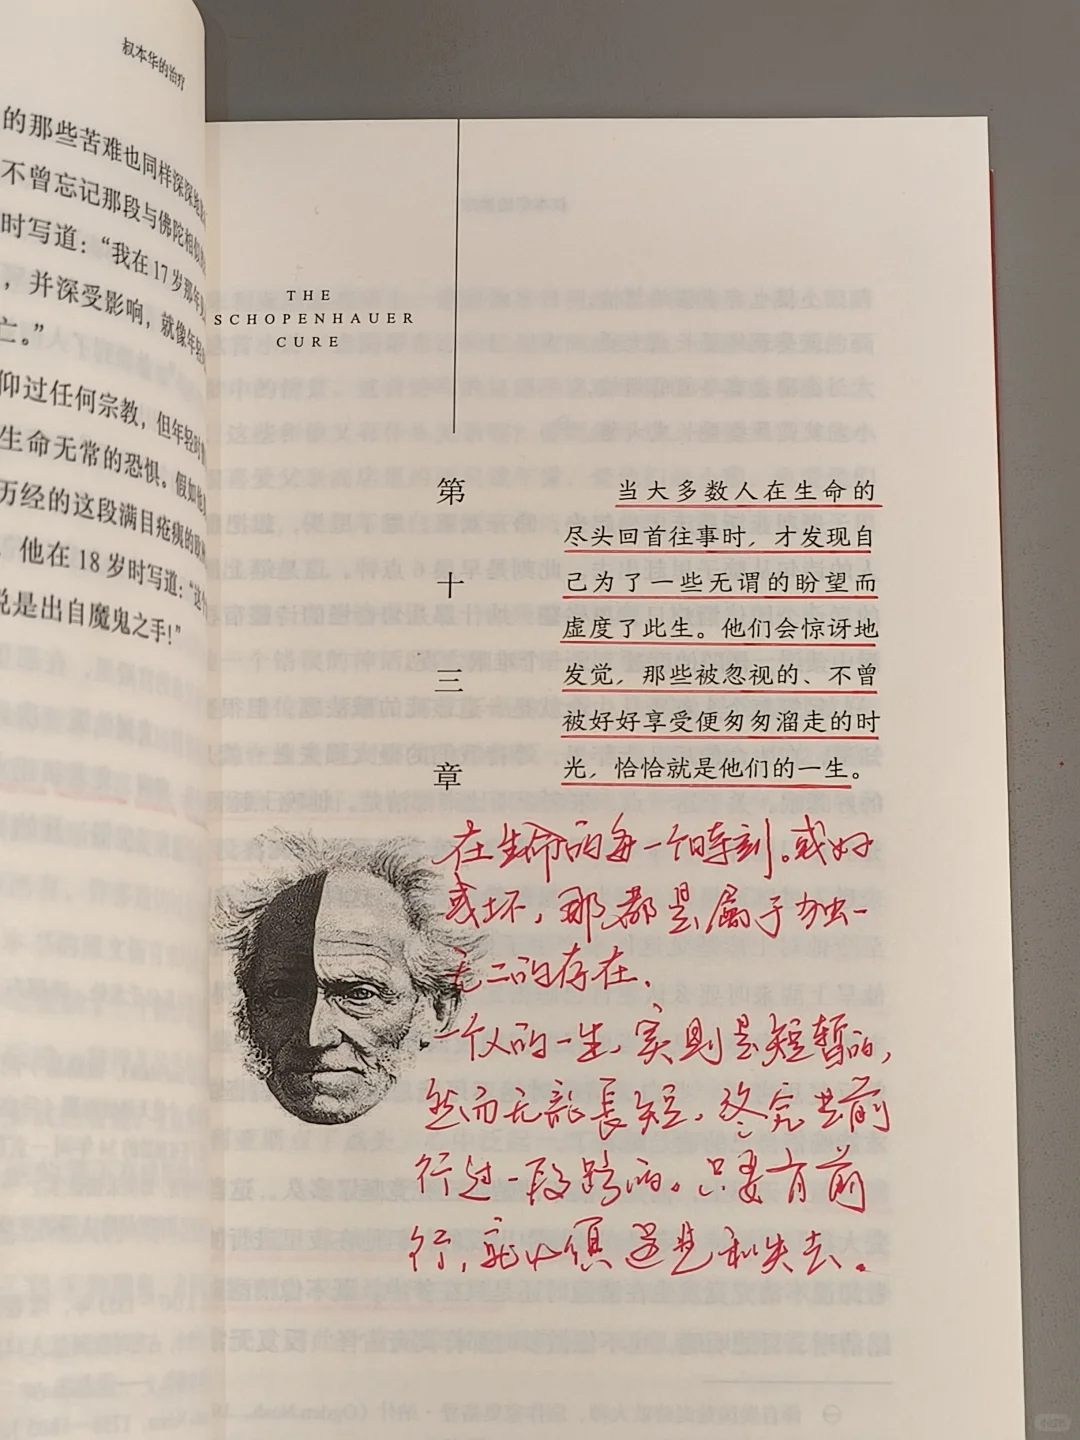 叔本华的治疗
的那些苦难也同样深深地
不曾忘记那段与佛陀相似
时写道：“我在17岁那年
，并深受影响，就像年轻
亡。”
仰过任何宗教，但年轻时
生命无常的恐惧。假如他
历经的这段满目疮痍的欧
他在18岁时写道：“这个
说是出自魔鬼之手！”
THE
SCHOPENHAUER
CURE
第十三章
当大多数人在生命的
尽头回首往事时，才发现自
己为了一些无谓的盼望而
虚度了此生。他们会惊讶地
发觉，那些被忽视的、不曾
被好好享受便匆匆溜走的时
光，恰恰就是他们的一生。
在生命的每一个時刻。或好
或坏，那都是属于独一
无二的存在、
一个人的一生，实则是短暂的，
然而无论長短，终究共前
行过一段路的。只要有前
行，就必须遇见和失去。
小红书